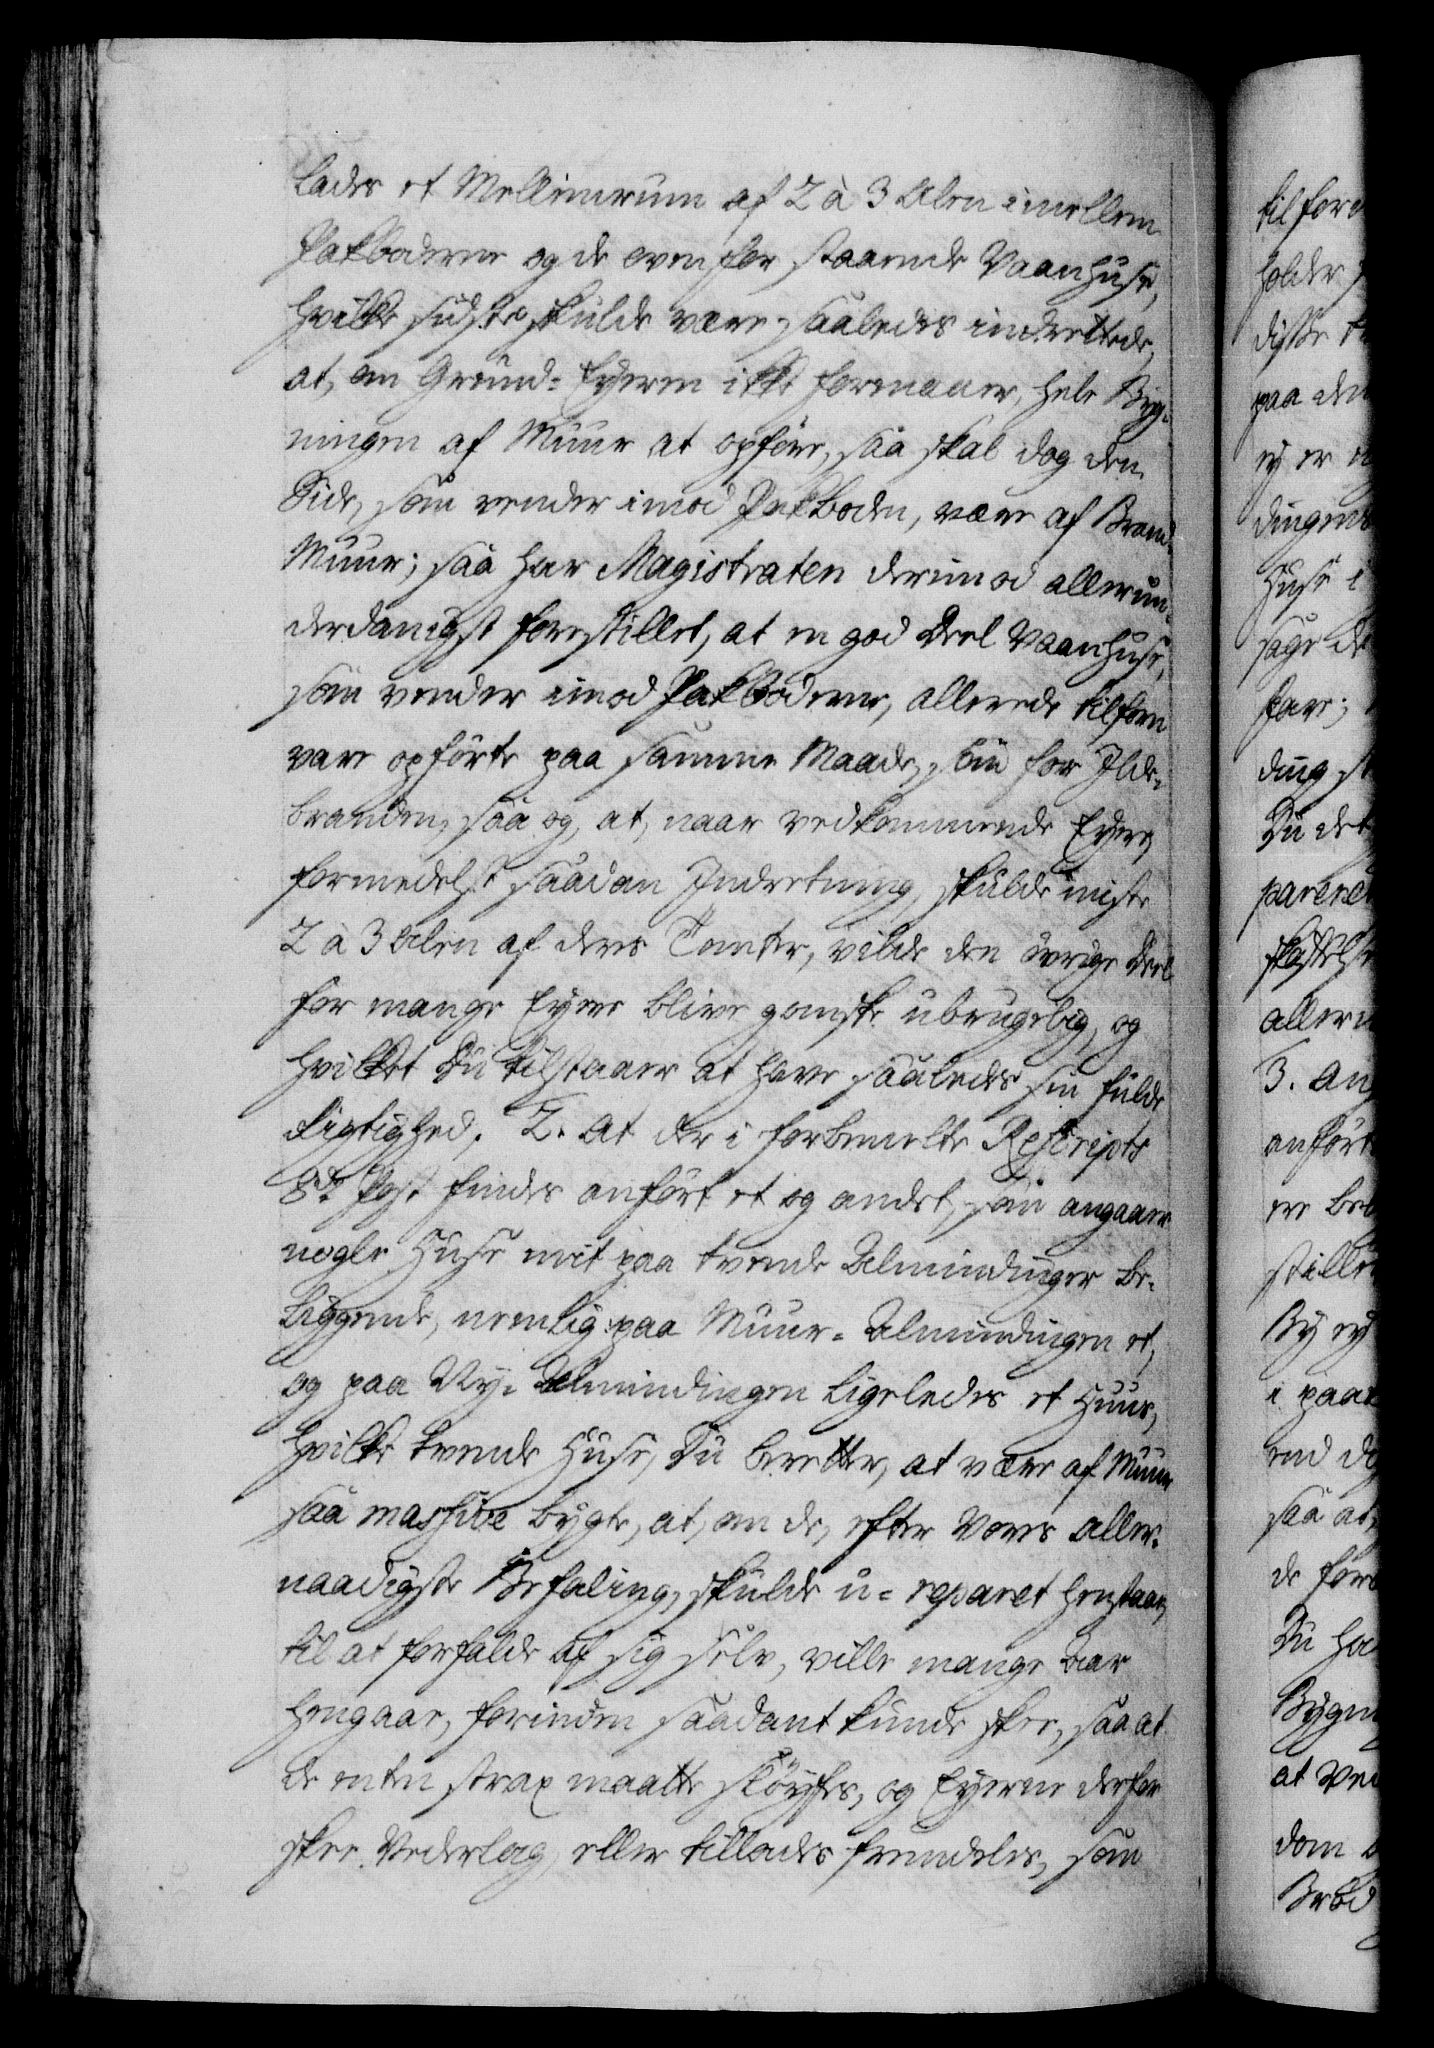 lades et Mellemrum af 2 à 3 Alen imellem
Pakboderne og de ovenfor staaende Vaanhuse,
hvilke sidste skulde være saaledes indrettede,
at, om Grund-Eyeren ikke formaaer, hele Byg-
ningen af Muur at opføre, saa skal dog den
Side, som vender imod Pakboden, være af Brand-
Muur; saa har Magistraten derimod allerun-
derdanigst forestillet, at en god Deel Vaanhuse,
som vender imod Pakboderne, allerede tilforn
vare opførte paa samme Maade, som for Ilde-
branden, saa og, at, naar vedkommende Eyere,
formedelst saadan Indretning, skulde miste
2 à 3 Alen af deres Tomter, vilde den øvrige Deel
for mange Eyere blive ganske ubrugelig, og
hvilket Du tilstaaer at have saaledes sin fulde
Rigtighed. 2. At der i forbemelte Rescripts
8de Post findes anført et og andet, som angaaer
nogle Huse mit paa tvende Almindinger be-
liggende, nemlig: paa Muur-Almindingen et,
og paa Ny-Almindingen ligeledes et Huus,
hvilke tvende Huse, Du beretter, at være af Muur
saa massive bygte, at, om de, efter Vores aller-
naadigste Befaling, skulde u-reparet henstaae,
til at forfalde af sig selv, ville mange Aar
hengaae, forinden saadant kunde skee, saa at
de enten strax maatte sløyfes, og Eyerne derfor
skee Vederlag, eller tillades fremdeles, som